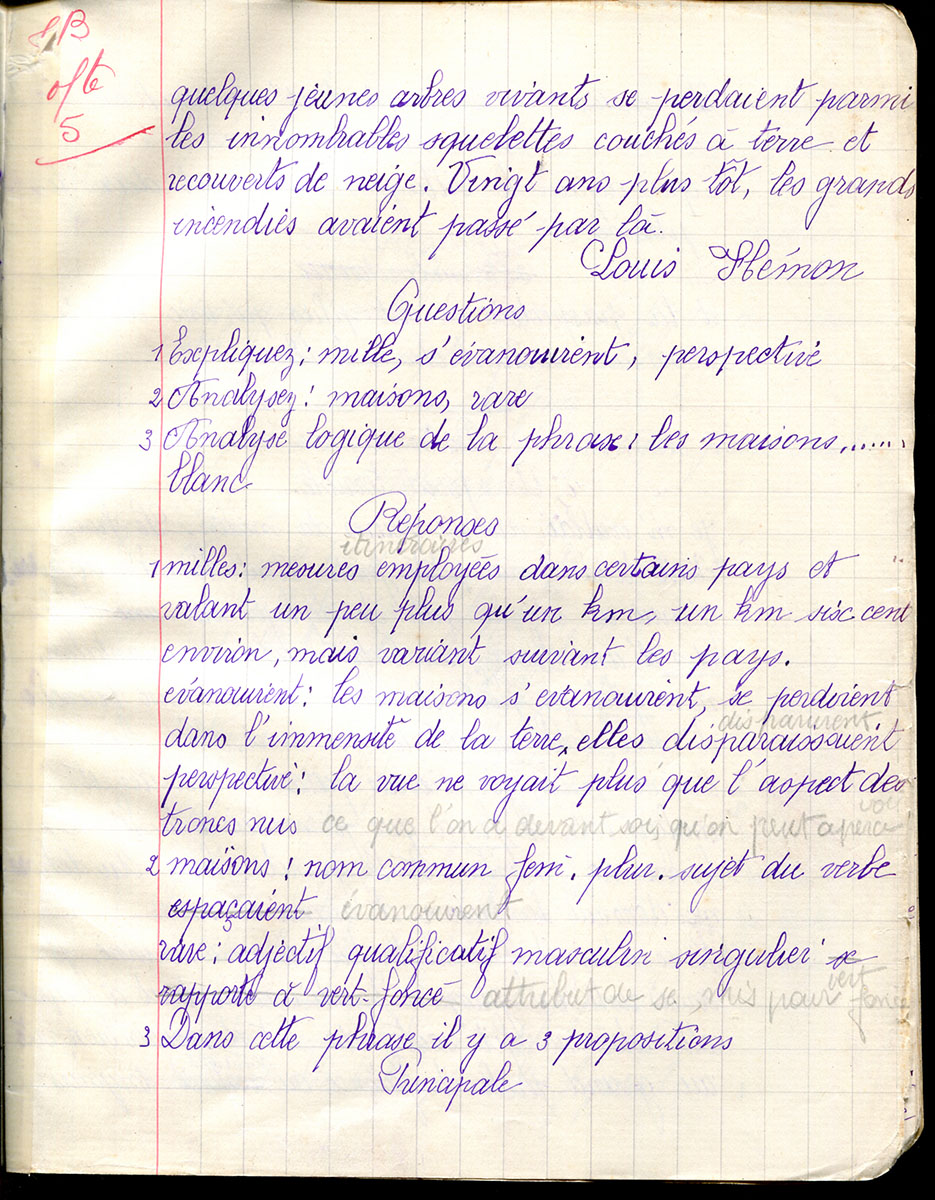 5
quelques jeunes arbres vivants se perdaient parmi
les innombrables squelettes couchés à terre et
recouverts de neige. Vingt ans plus tôt, les grands
incendies avaient passé par là.
Louis Hémon
Questions
1 Expliquez : mille, s'évanouirent, perspective
2 Analysez : maisons, rare
3 Analyse logique de la phrase : les maisons......
blanc
Réponses
itinéraires
1 milles : mesures employées dans certains pays et
valant un peu plus qu'un km, un km six cent
environ, mais variant suivant les pays.
évanouirent : les maisons s'évanouirent, se perdoient
disparurent
dans l'immensité de la terre, elles disparaissaient
perspective : la vue ne voyait plus que l'aspect des
troncs nus ce que l'on a devant soi, qu'on peut aperce
voir
2 maisons : nom commun fem. plur. sujet du verbe
espaçaient évanouirent
rare : adjectif qualificatif masculin singulier se
rapporte à vert-foncé attribut de se, mis pour vert foncé
3 Dans cette phrase il y a 3 propositions
Principale